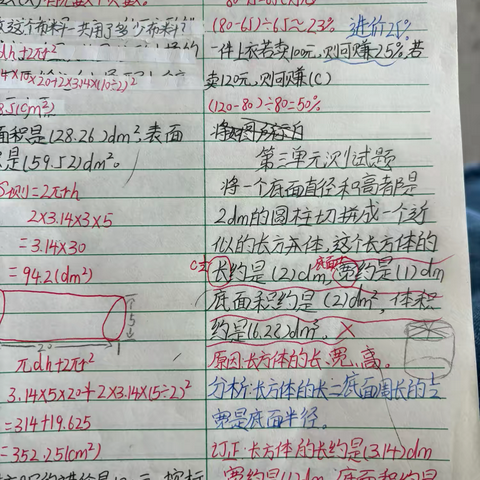 πdh+2πr²
8.5(cm²)
面积是(28.26)dm²,表面
是(59.52)dm²。
S侧=2πrh
2×3.14×3×5
=3.14×30
=94.2(dm²)
5
20
πdh+2πr²
3.14×5×20+2×3.14×(5÷2)²
=314+19.625
=352.25(cm²)
(80-65)÷65≈23%
进价25%
一件上衣若卖100元,则可赚25%,若
卖120元,则可赚(C)
(120-80)÷80=50%
第三单元测试题
将一个底面直径和高都是
2dm的圆柱切拼成一个近
似的长方体,这个长方体的
长约是(2)dm,宽约是(1)dm
底面积约是(2)dm²,体积
约是(6.28)dm³。
原因:长方体的长、宽、高。
分析:长方体的长=底面周长的
宽是底面半径。
订正:长方体的长约是(3.14)dm
宽约是(1)dm,底面积约是